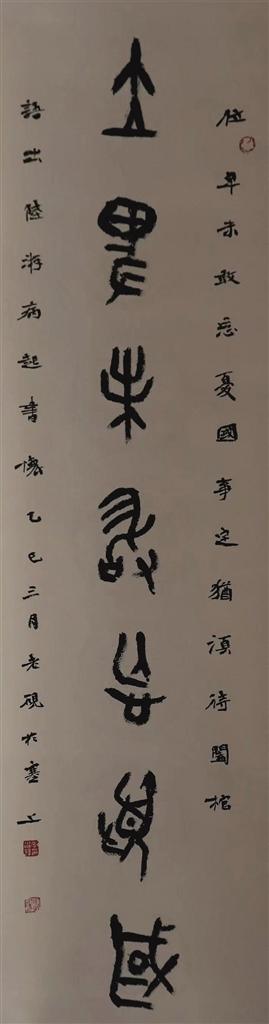 位卑未敢忘憂國事定猶須待闔棺
位卑未敢忘憂國
語出陸游病起書懷乙巳三月老硯於塞上